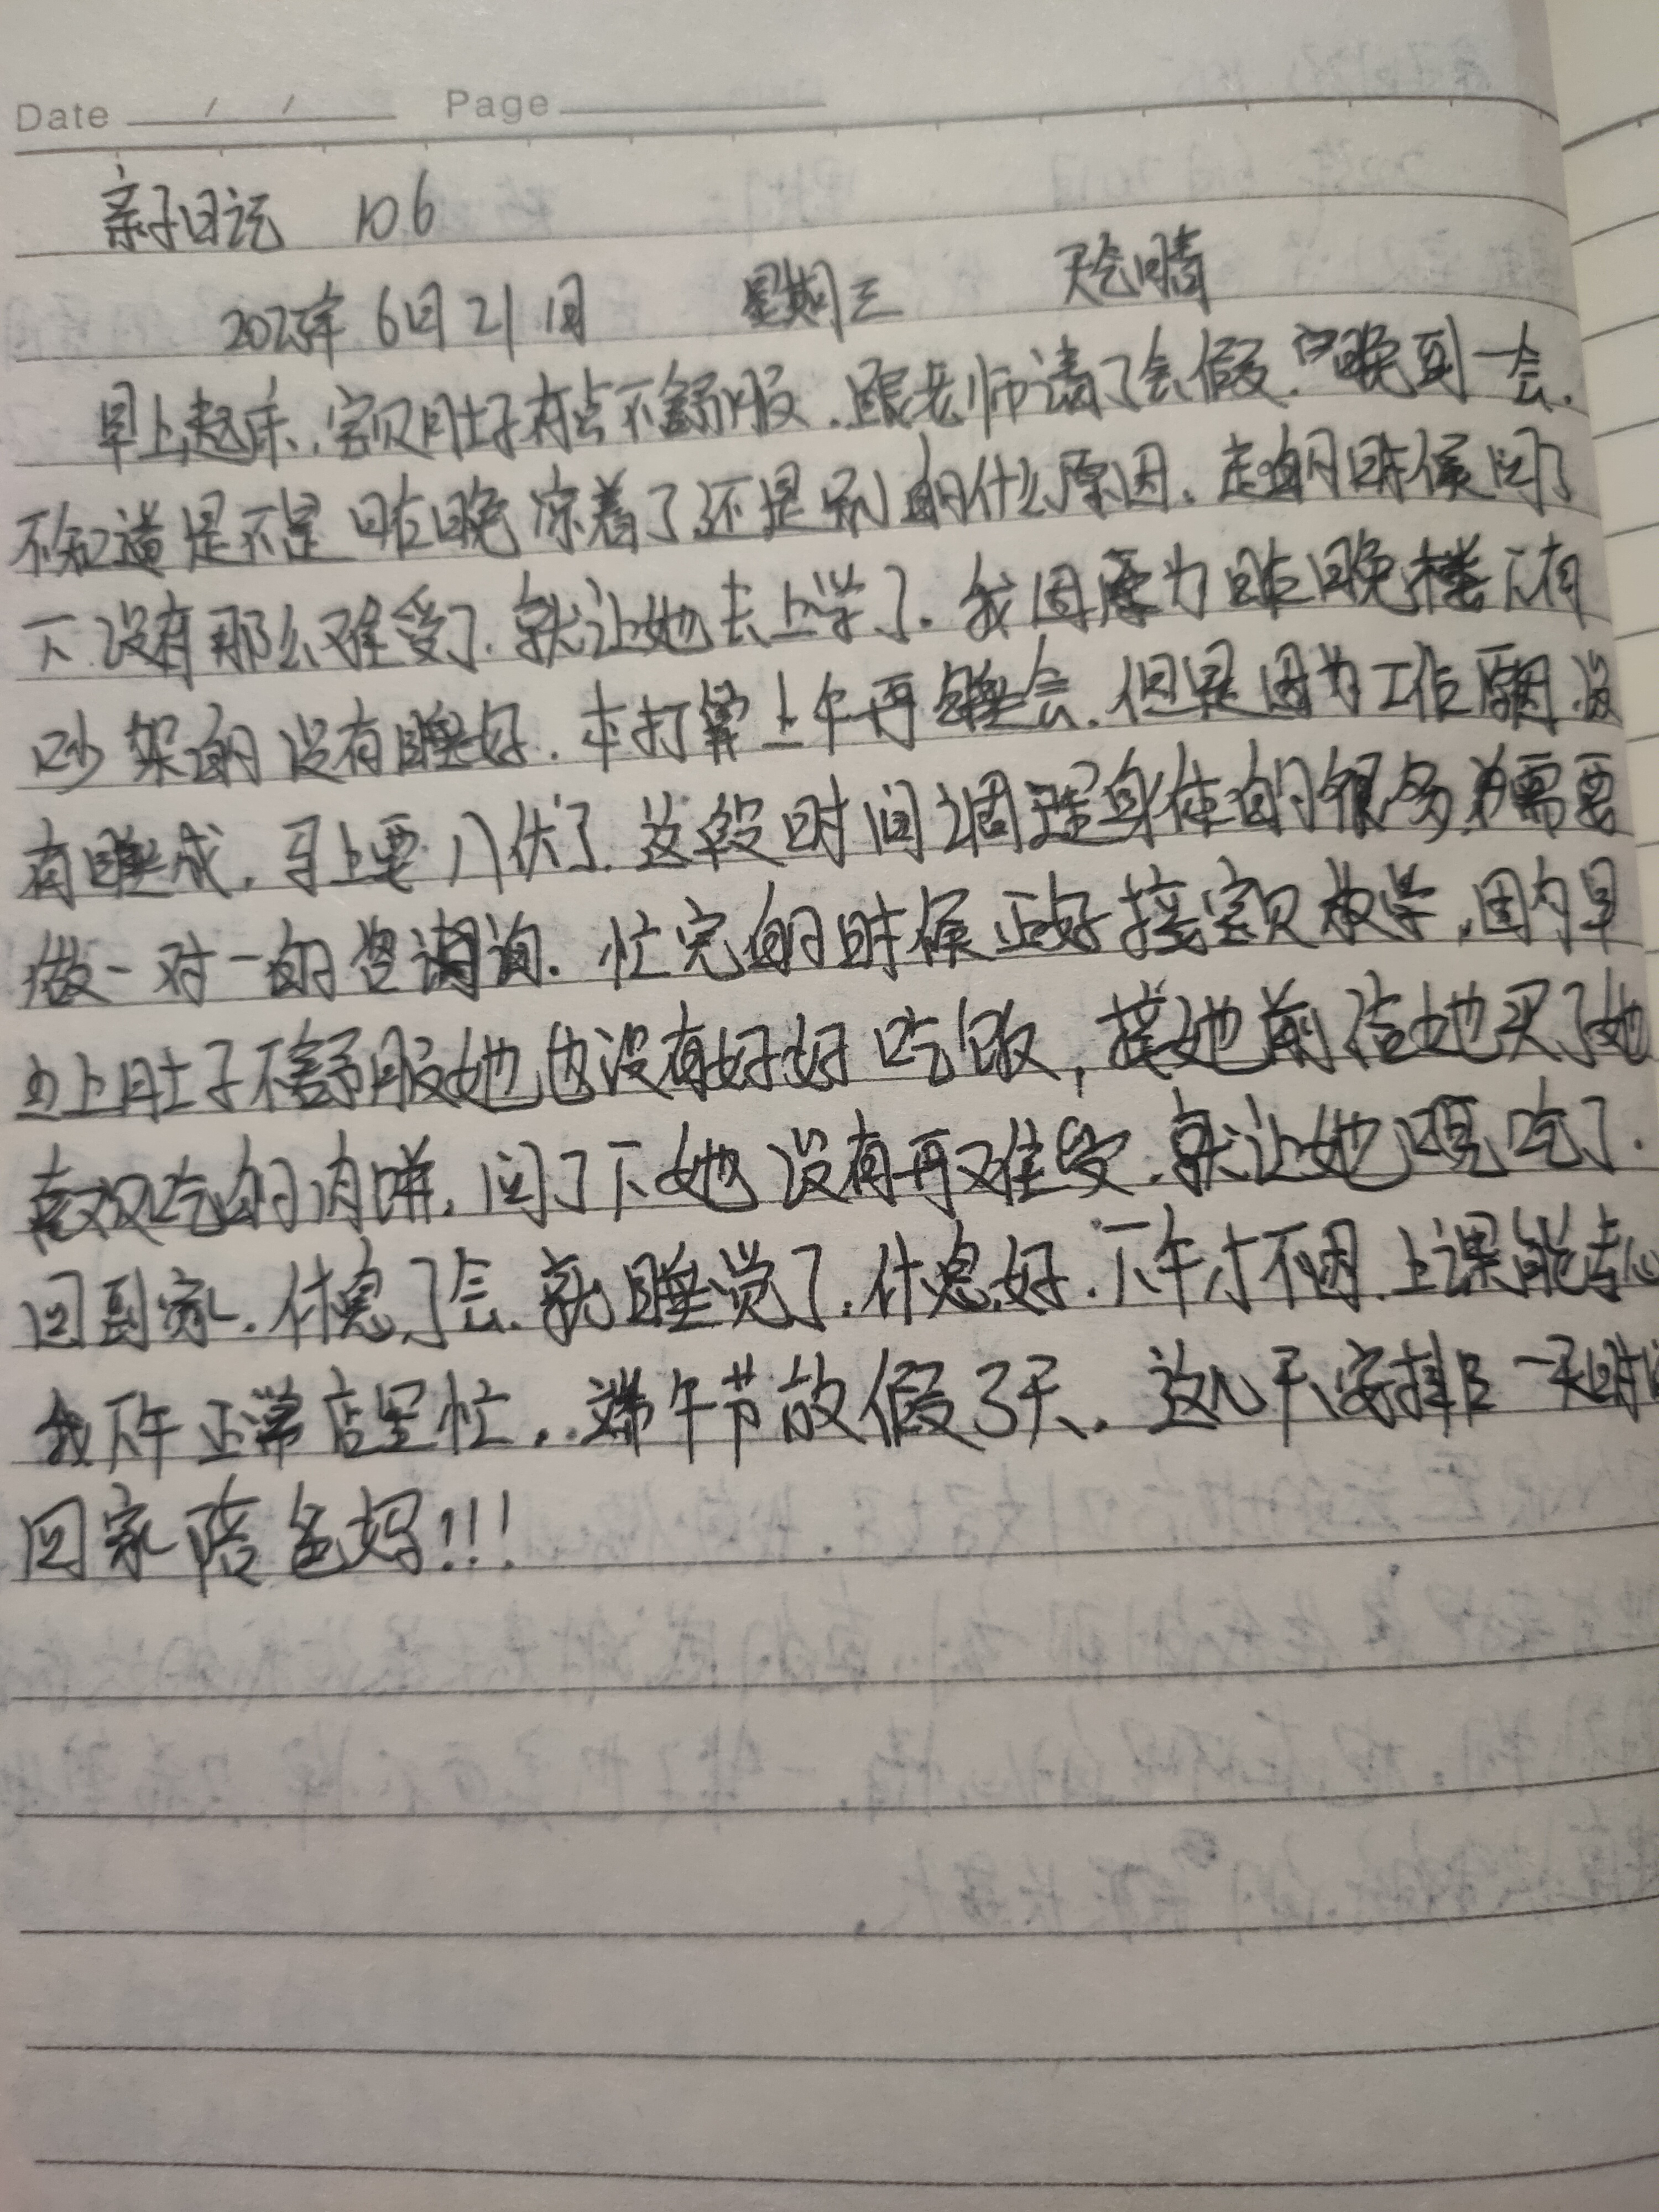 Date / / Page
亲子日记 106
2023年6月21日 星期三 天气晴
早上起床,宝贝肚子有点不舒服.跟老师请了会假.晚到一会.
不知道是不是昨晚凉着了,还是别的什么原因.走的时候问了
下.没有那么难受了.就让她去上学了.我因为昨晚楼下有
吵架的没有睡好.本打算上午再睡会.但是因为工作原因.没
有睡成.马上要入伏了.这段时间调理身体的很多.需要
做一对一的咨询.忙完的时候正好接宝贝放学,因为早
上肚子不舒服她也没有好好吃饭,接她前给她买了她
喜欢吃的肉饼.问了下她没有再难受.就让她吃了.
回到家.休息了会.就睡觉了.休息好.下午才不困.上课能专心
我下午正常店里忙..端午节放假3天.这几天安排一天时间
回家陪爸妈!!!